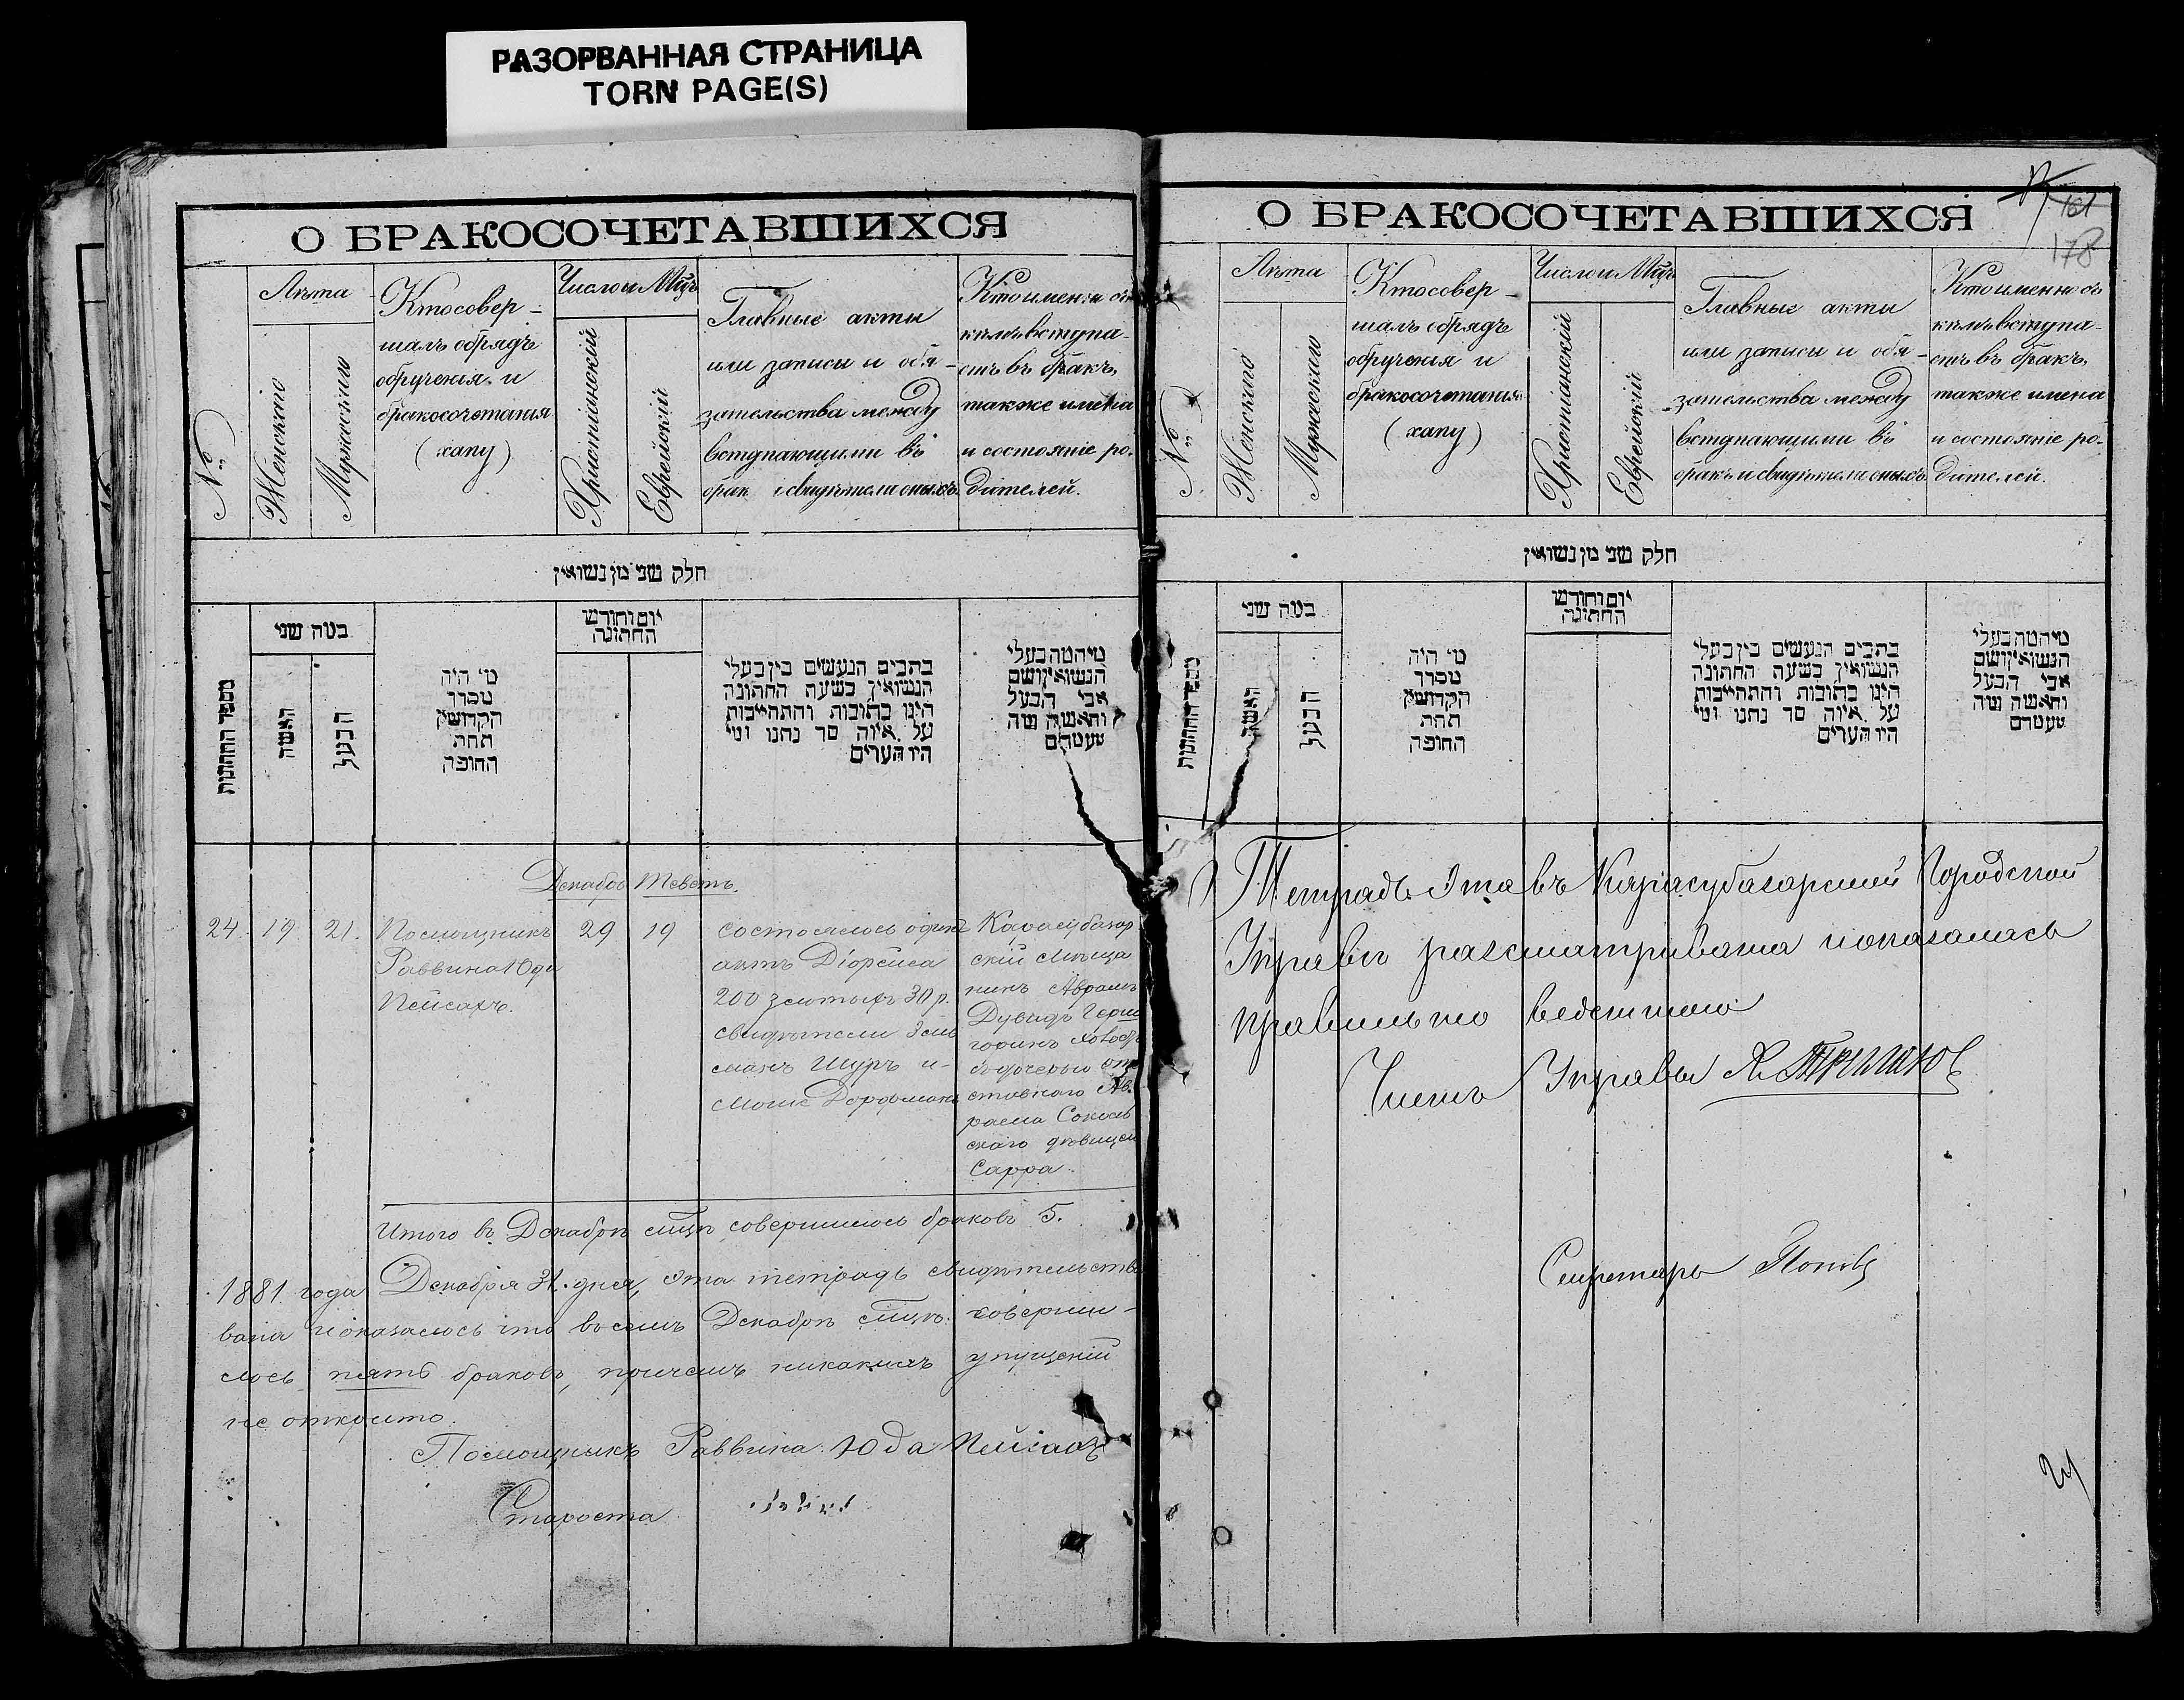 РАЗОРВАННАЯ СТРАНИЦА
TORN PAGE(S)
О БРАКОСОЧЕТАВШИХСЯ
№
Лѣта
Женскаго
Мужескаго
Кто совер-
шалъ обрядъ
обрученія и
бракосочетанія
(хапу)
Число и Мцъ
Христіанскій
Еврейскій
Главные акты
или записи и обя-
зательства между
вступающими въ
брак и свидѣтели оныхъ
Кто именно съ
кѣмъ вступа-
етъ въ бракъ,
также имена
и состояніе ро-
дителей.
חלק שני מן נשואין
מספר החתונות
כמה שני
האשה
הבעל
מי היה
מסדר
הקדושין
תחת
החופה
יום וחודש
החתונה
כתבים הנעשים בין בעלי
הנשואין בשעת החתונה
היינו כתובות והתחייבות
על איזה סך נתנו ומי
היו העדים
מי המה בעלי
הנשואין ושם
אבי הבעל
והאשה ומה
מעמדם
Декабрь Теветъ.
24
19
21.
Помощникъ
Раввина Юда
Пейсахъ.
29
19
состоялось одинъ
актъ
200 золотыхъ 30 р.
свидѣтели
Шуръ и
Дорфманъ
Карасубазар
скій мѣща
нинъ Аврамъ
Дувидъ
съ дочерью от
ставного Ав.
рама
скаго дѣвицей
Сарра.
Итого въ Декабрѣ мцѣ совершилось браковъ 5.
1881 года Декабря 31. дня, эта тетрадь свидѣтельство
вана и оказалось что въ семъ Декабрѣ мцѣ соверши-
лось пять браковъ, причемъ никакихъ упущеній
не открыто.
Помощникъ Раввина Юда Пейсахъ
Староста
О БРАКОСОЧЕТАВШИХСЯ
161
178
№
Лѣта
Женскаго
Мужескаго
Кто совер-
шалъ обрядъ
обрученія и
бракосочетанія
(хапу)
Число и Мцъ
Христіанскій
Еврейскій
Главные акты
или записи и обя-
зательства между
вступающими въ
бракъ и свидѣтели оныхъ
Кто именно съ
кѣмъ вступа-
етъ въ бракъ,
также имена
и состояніе ро-
дителей.
חלק שני מן נשואין
מספר החתונות
כמה שני
האשה
הבעל
מי היה
מסדר
הקדושין
תחת
החופה
יום וחודש
החתונה
כתבים הנעשים בין בעלי
הנשואין בשעת החתונה
היינו כתובות והתחייבות
על איזה סך נתנו ומי
היו העדים
מי המה בעלי
הנשואין ושם
אבי הבעל
והאשה ומה
מעמדם
Тетрадь эта въ Карасубазарской Городской
Управѣ разсматривана и оказалась
правильно веденною
Членъ Управы
Секретарь Поповъ
24